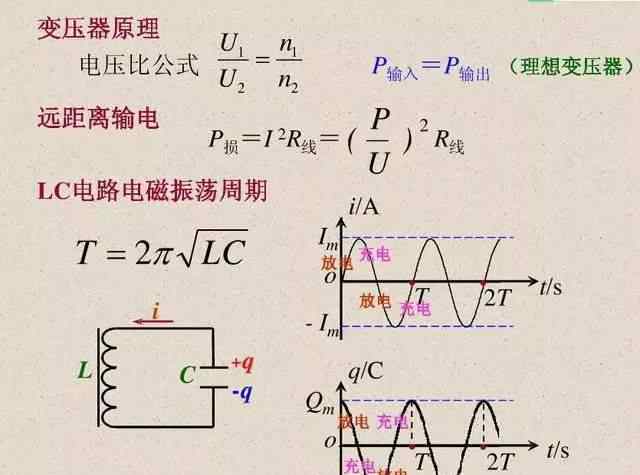 变压器原理
电压比公式 U₁/U₂ = n₁/n₂ P输入=P输出 (理想变压器)
远距离输电
P损=I²R线=(P/U)²R线
LC电路电磁振荡周期
T = 2π√LC
i/A
Iₘ
放电 充电
o T 2T t/s
放电 充电
- Iₘ
i
L C +q
-q
q/C
Qₘ
放电 充电
o T 2T t/s
充电 放电